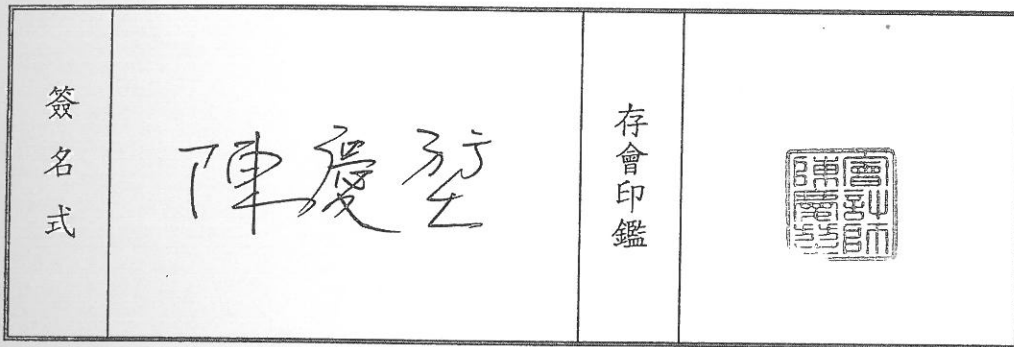 簽名式
陳慶堃
存會印鑑
會計師
陳慶堃